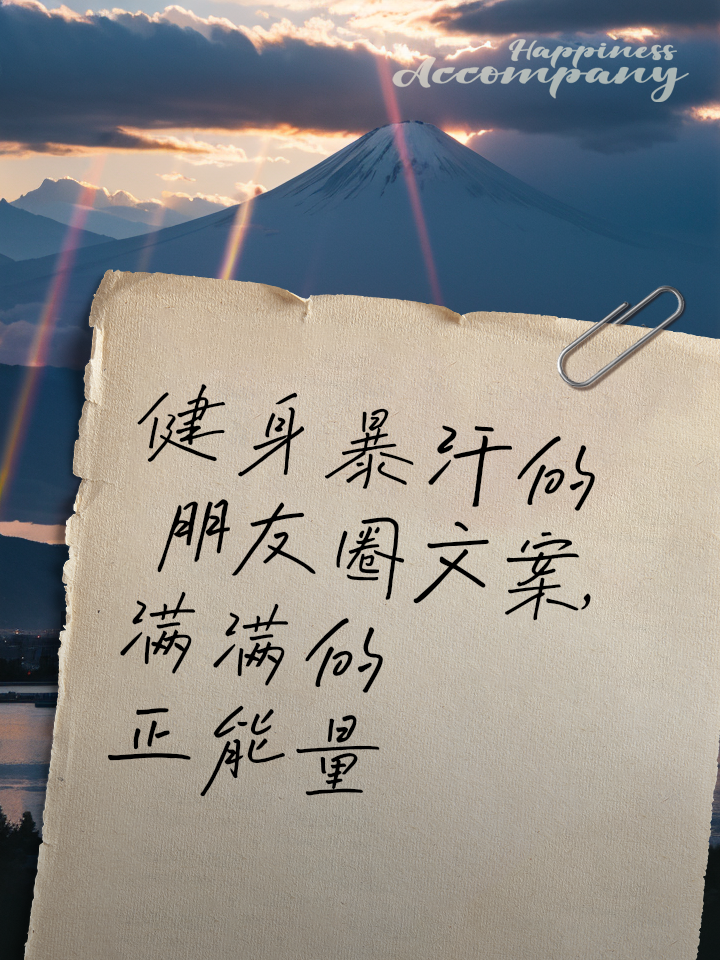 Happiness
Accompany
健身暴汗的
朋友圈文案,
满满的
正能量